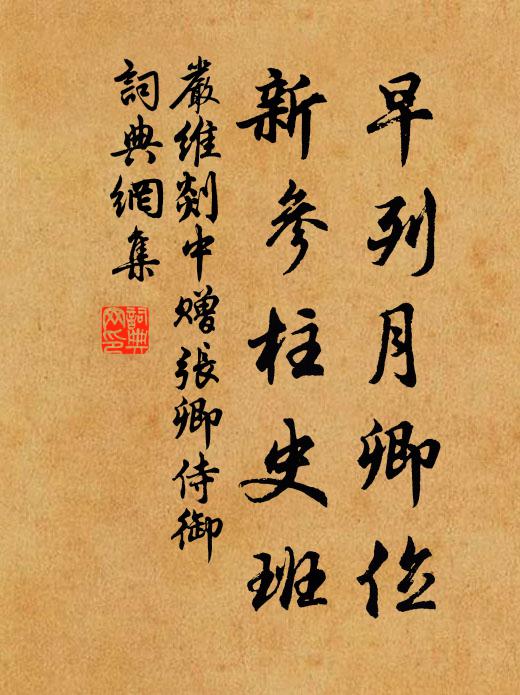 早列月卿位
新參柱史班
嚴維剡中贈張卿侍御
詞典網集
詞典網印